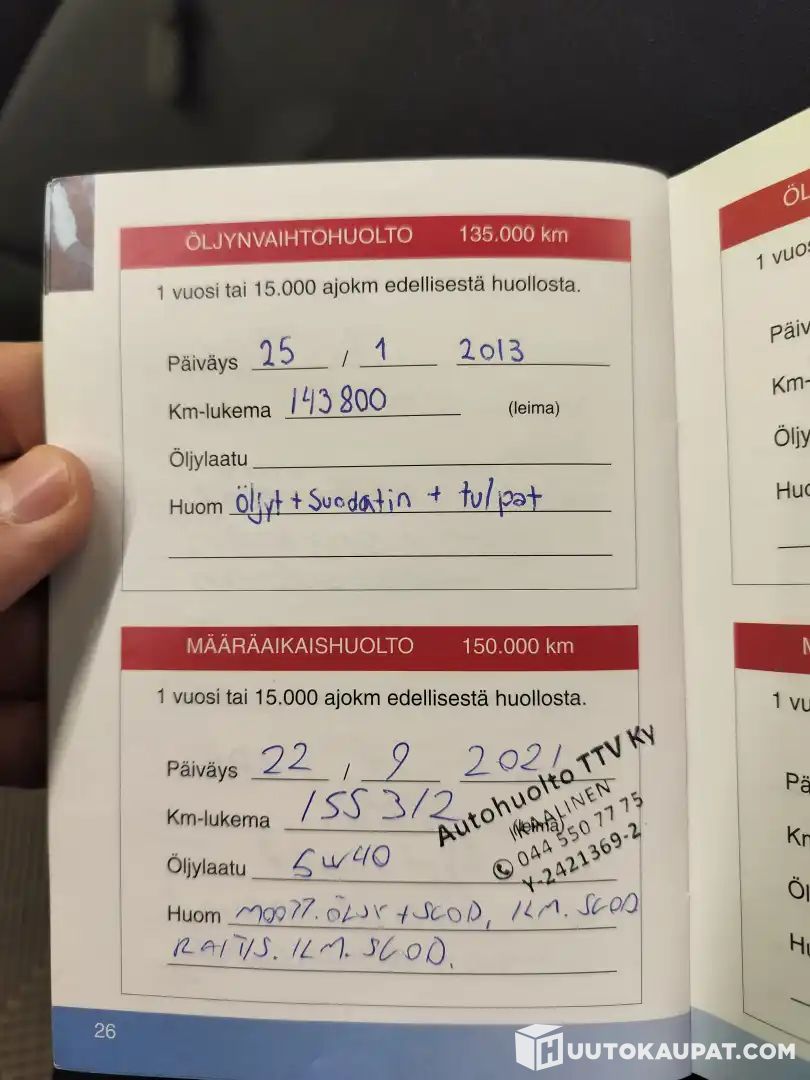 ÖLJYNVAIHTOHUOLTO 135.000 km
1 vuosi tai 15.000 ajokm edellisestä huollosta.
Päiväys 25 / 1 2013
Km-lukema 143800 (leima)
Öljylaatu
Huom Öljyt + Suodatin + tulpat
MÄÄRÄAIKAISHUOLTO 150.000 km
1 vuosi tai 15.000 ajokm edellisestä huollosta.
Päiväys 22 / 9 2021
Km-lukema 155312 (leima)
Autohuolto TTV Ky
IKAALINEN
044 550 77 75
Y-2421369-2
Öljylaatu 5w40
Huom MOOTT. ÖLJY + SUOD, ILM. SUOD
RAITIS. ILM. SUOD.
26
ÖL
1 vuos
Päiv
Km-
Öljy
Huo
M
1 vu
Pä
Kr
Öl
Hu
HUUTOKAUPAT.COM